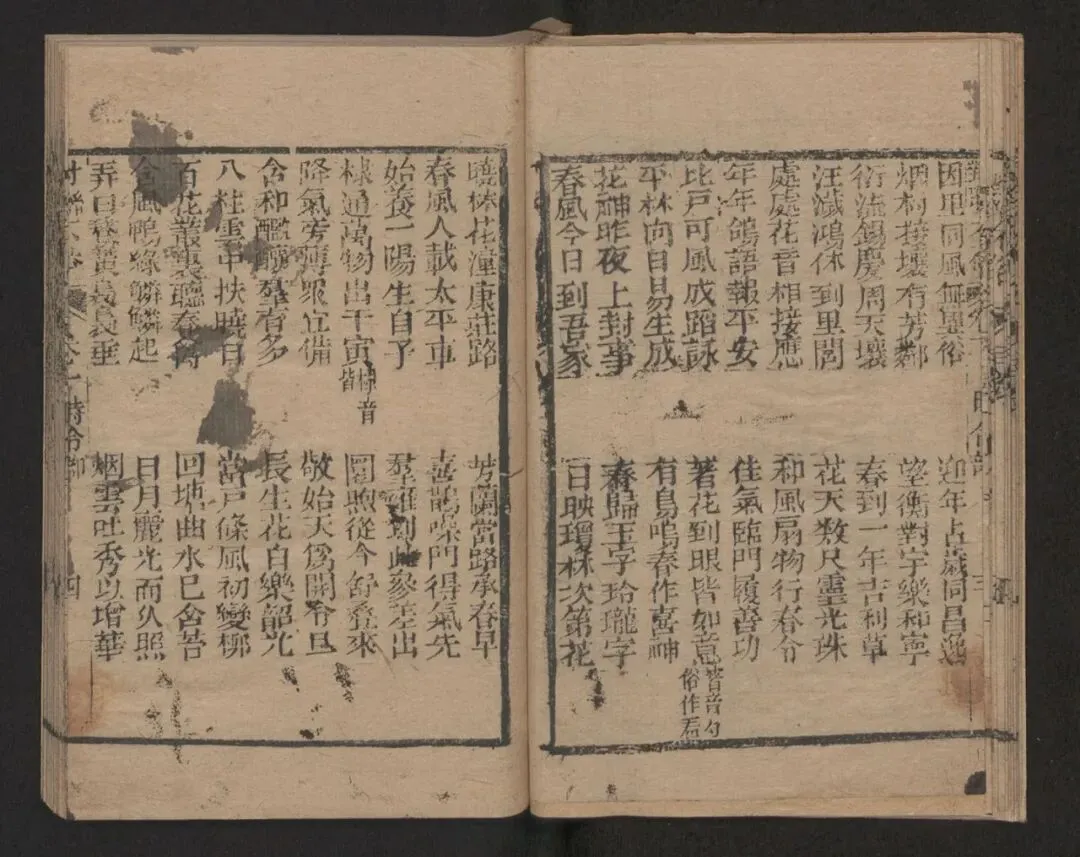 因里同風無異俗
迎年占歲同昌
烟村接壤有芳鄰
望衡對宇樂和寧
衍流錫慶周天壤
春到一年吉利草
汪濊鴻休到里閭
花天数尺靈光珠
處處花音相接應
和風扇物行春令
年年鴿語報平安
佳氣臨門履善功
比戸可風成蹈詠
著花到眼皆如意
皆音勺
俗作看
平林向日易生成
有鳥鳴春作喜神
花神昨夜上封事
春歸玉字玲瓏字
春風今日到吾家
日映瓊林次第花
曉林花 康莊路
芳蘭當路承春早
春風人載太平車
喜鵲噪門得氣先
始養一陽生自子
羣 到此參差出
棣通萬物出干寅
音
皆
圖煦從今舒 來
降氣 薄眾宜備
敬始天爲開令旦
含和 羣有多
長生花白樂韶光
八柱雲中扶曉日
當戸條風初變柳
百花叢裏聽春
回地曲水已含苔
含風鴨 鱗鱗起
日月麗光而久照
弄日 黄 裊垂
烟雲吐秀以增華
時令部
四